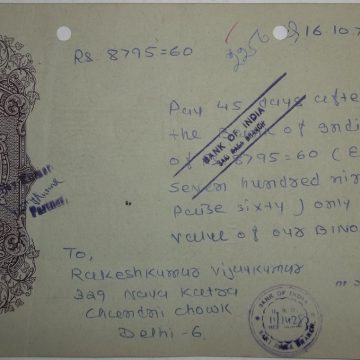 Rs. 8795=60
16.10.7
Pay 45 days after
the Bank of Indi
BANK OF INDIA
of 8795=60 (E
seven hundred nin
paise sixty) only
value of our
To,
Partner.
Rakeshkumar Vijaykumar
329 Nava Katra
Chandni Chowk
Delhi-6
BANK OF INDIA